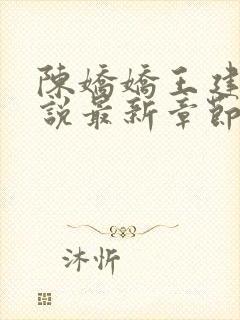 陳嬌嬌王建
說最新章節
沐忻